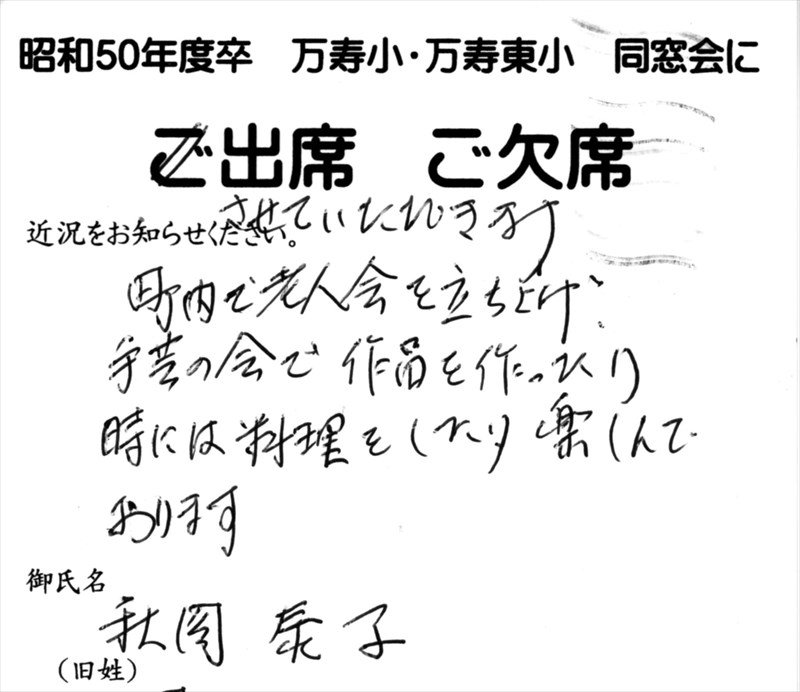 昭和50年度卒 万寿小・万寿東小 同窓会に
ご出席 ご欠席
させていただきます
近況をお知らせください。
町内で老人会を立ち上げ
手芸の会で 作品を作ったり
時には料理をしたり 楽しんで
おります
御氏名
秋岡 泰子
(旧姓)